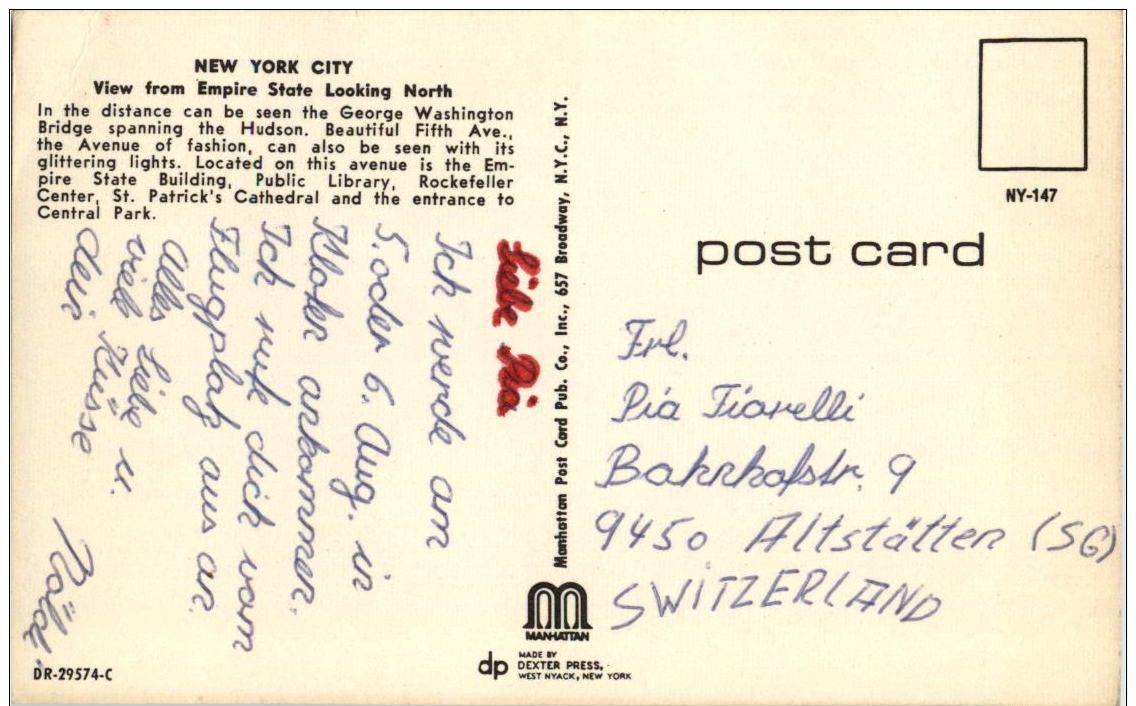 NEW YORK CITY
View from Empire State Looking North
In the distance can be seen the George Washington
Bridge spanning the Hudson. Beautiful Fifth Ave.,
the Avenue of fashion, can also be seen with its
glittering lights. Located on this avenue is the Em-
pire State Building, Public Library, Rockefeller
Center, St. Patrick's Cathedral and the entrance to
Central Park.
Liebe Pia
Ich werde am
5. oder 6. Aug. in
Kloten ankommen.
Ich rufe dich vom
Flugplatz aus an.
Alles Liebe u.
viele Küsse
dein
DR-29574-C
Manhattan Post Card Pub. Co., Inc., 657 Broadway, N.Y.C., N.Y.
MANHATTAN
dp
MADE BY
DEXTER PRESS,
WEST NYACK, NEW YORK
NY-147
post card
Frl.
Pia Fiorelli
Bahnhofstr. 9
9450 Altstätten (SG)
SWITZERLAND